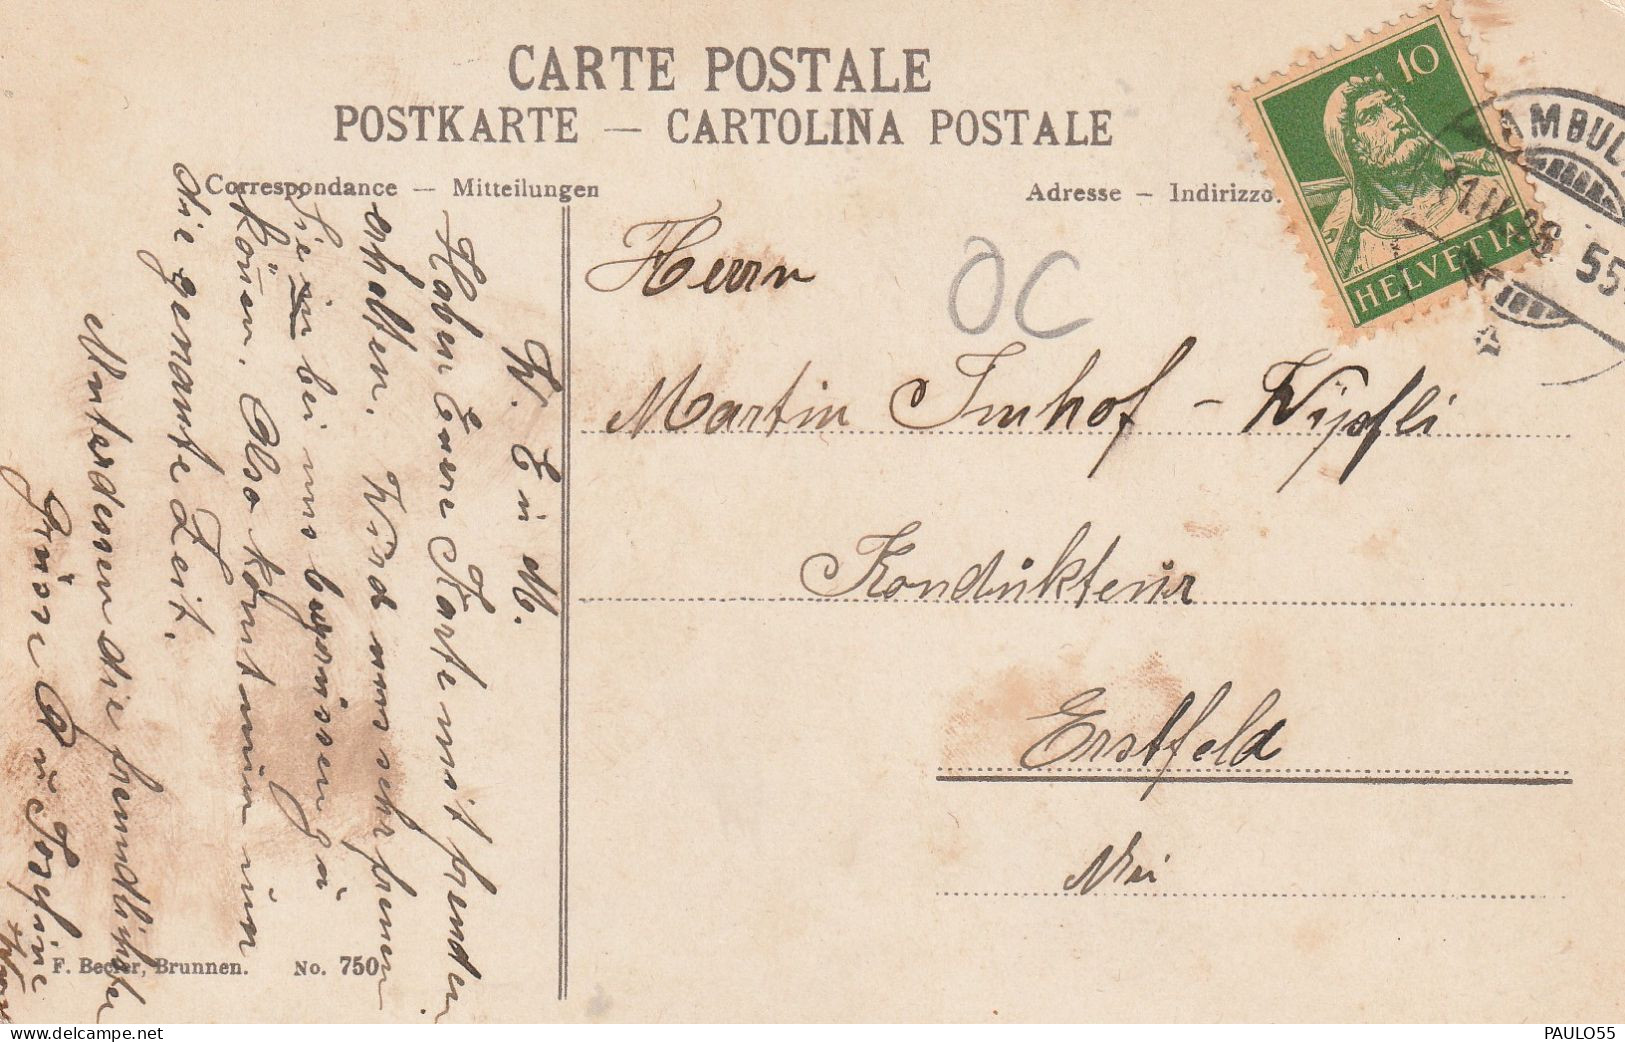 CARTE POSTALE
POSTKARTE — CARTOLINA POSTALE
Correspondance — Mitteilungen
Adresse — Indirizzo.
10
HELVETIA
AMBUL
11.IV.
55
OC
Herrn
Martin Imhof - Wipfli
Kondukteur
Erstfeld
Uri
W. E ü M.
Haben Eure Karte mit freuden
erhalten. Wird uns sehr freuen
Sie in bei uns
können. Also komt nun nur
die genante Zeit.
Unterdessen die freundlichsten
Grüsse
F. Becler, Brunnen. No. 750
delcampe.net
PAULO55